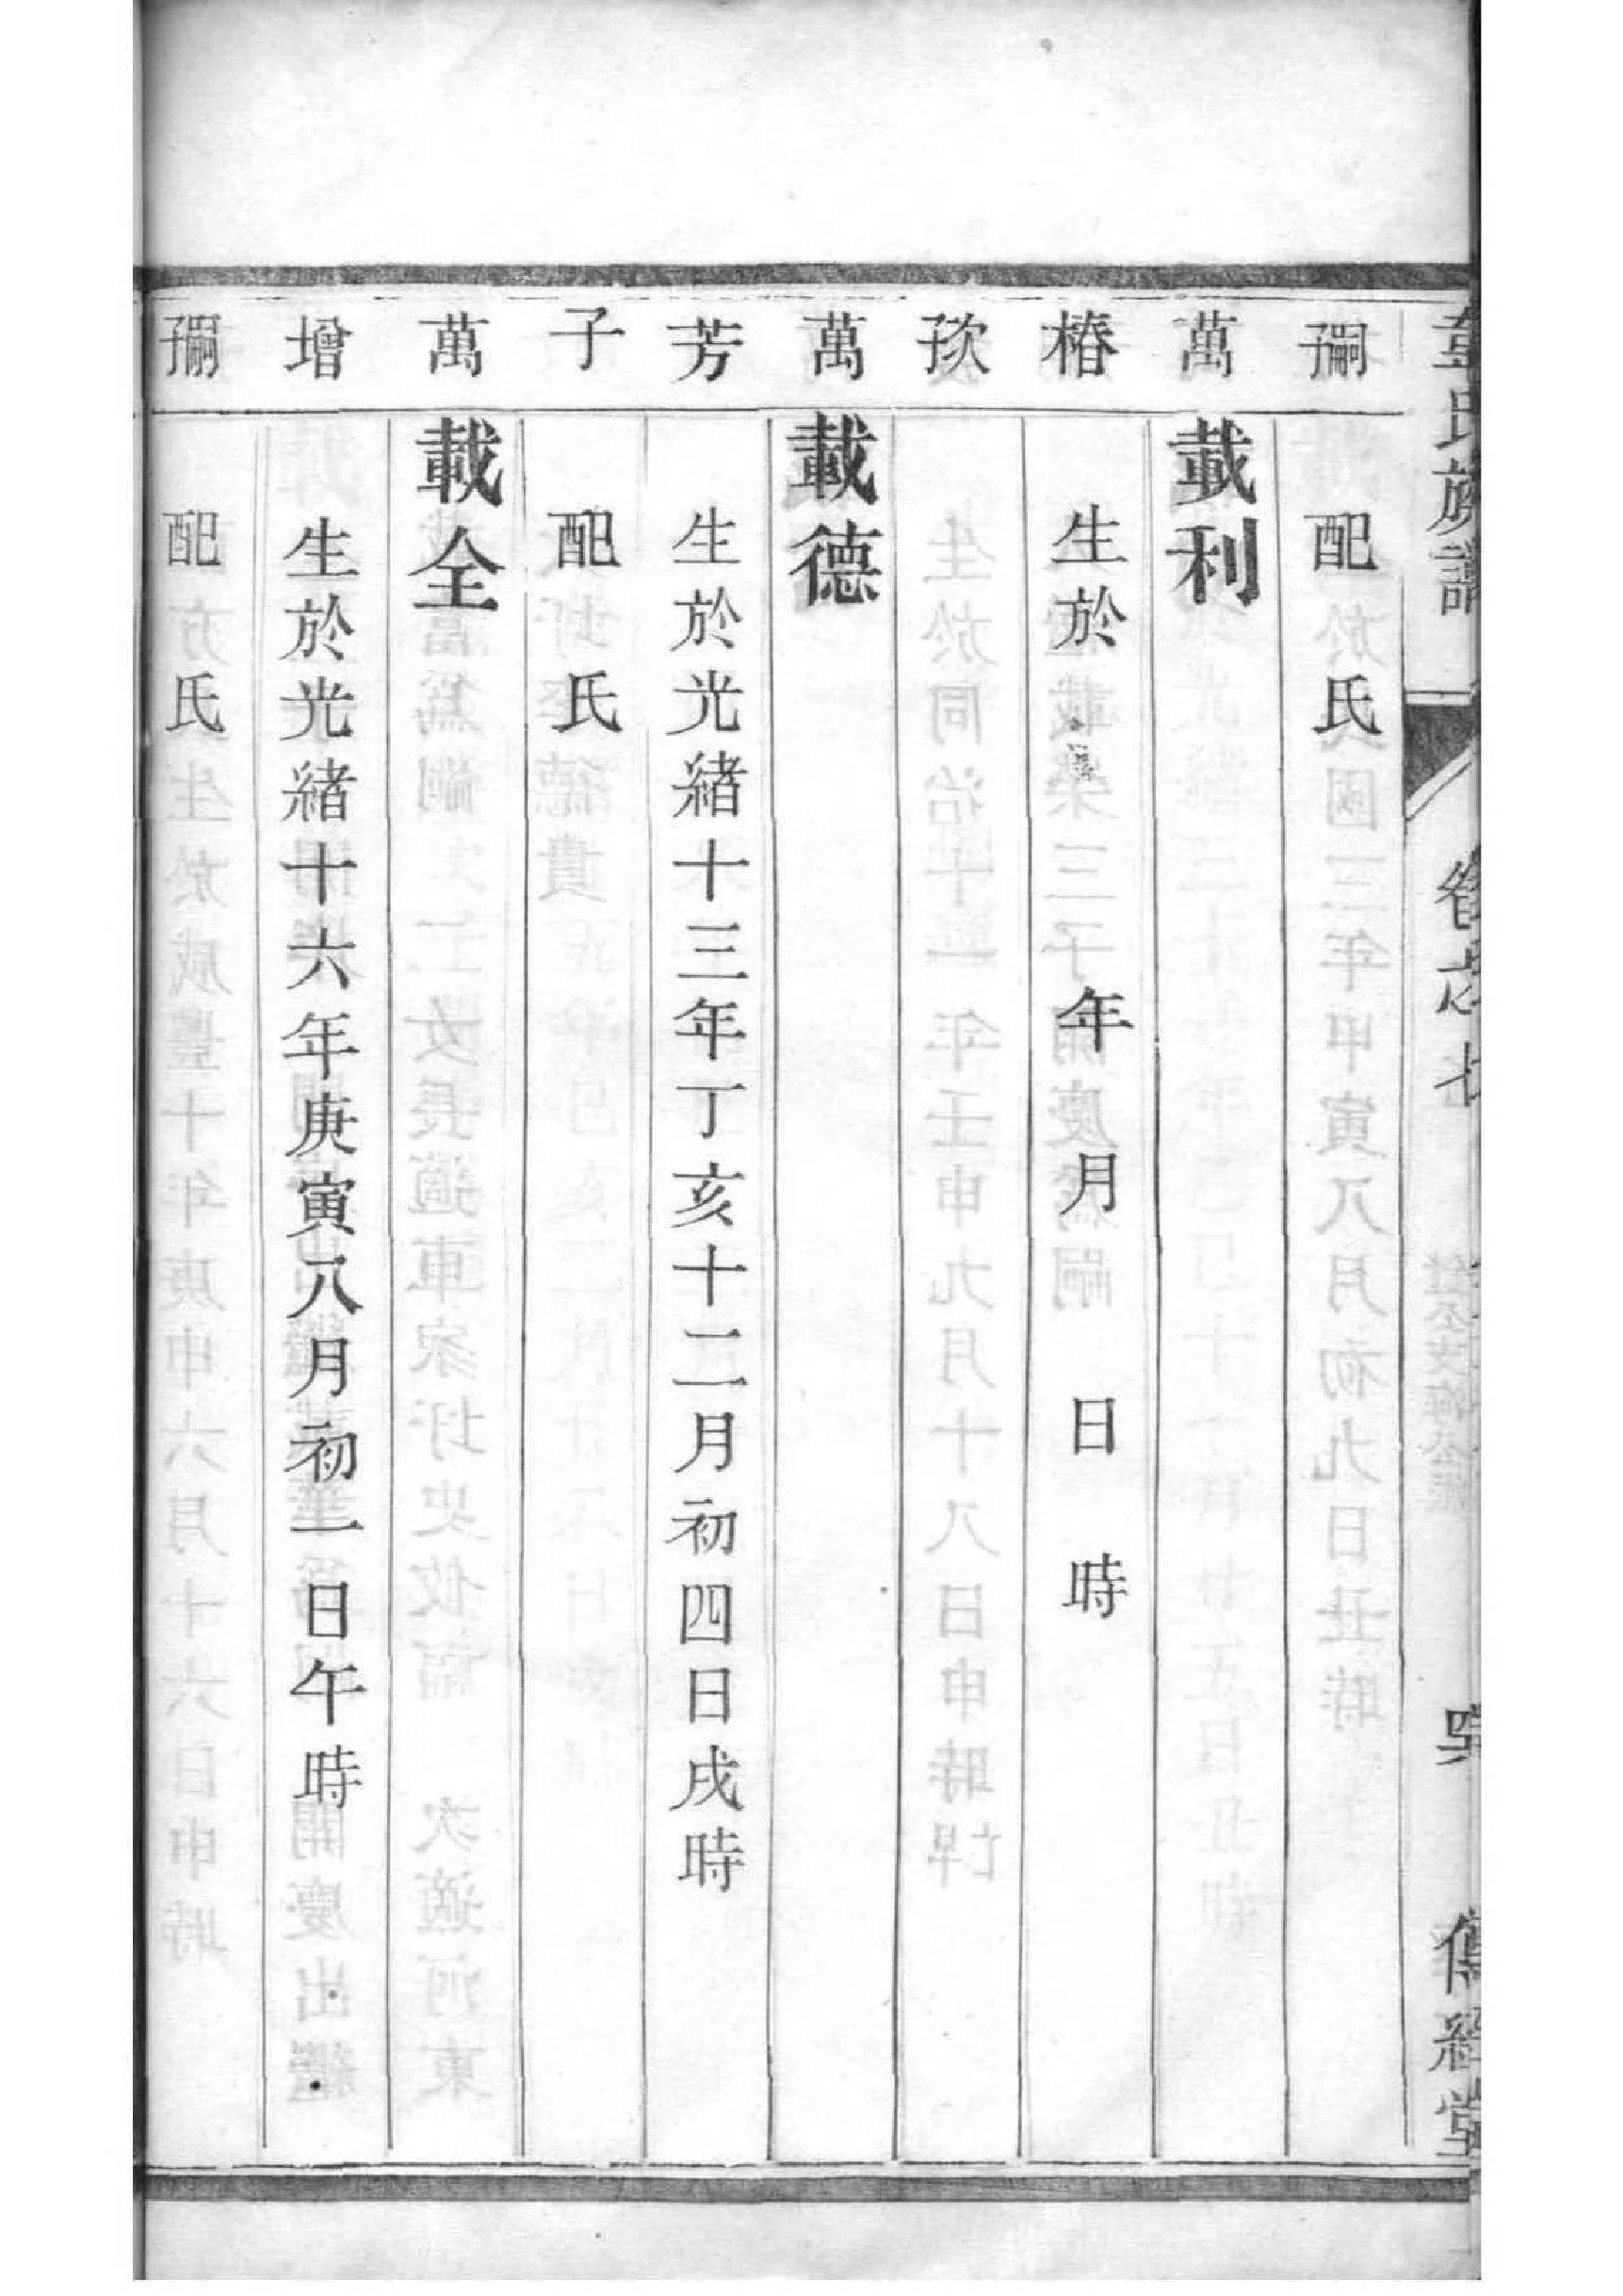 韋氏族譜 卷之七 吳 傳經堂
嗣 配 氏
萬 載利
椿 生於 年 月 日 時
次
萬 載德
芳 生於光緒十三年丁亥十二月初四日戌時
子 配 氏
萬 載全
增 生於光緒十六年庚寅八月初一日午時
嗣 配 氏